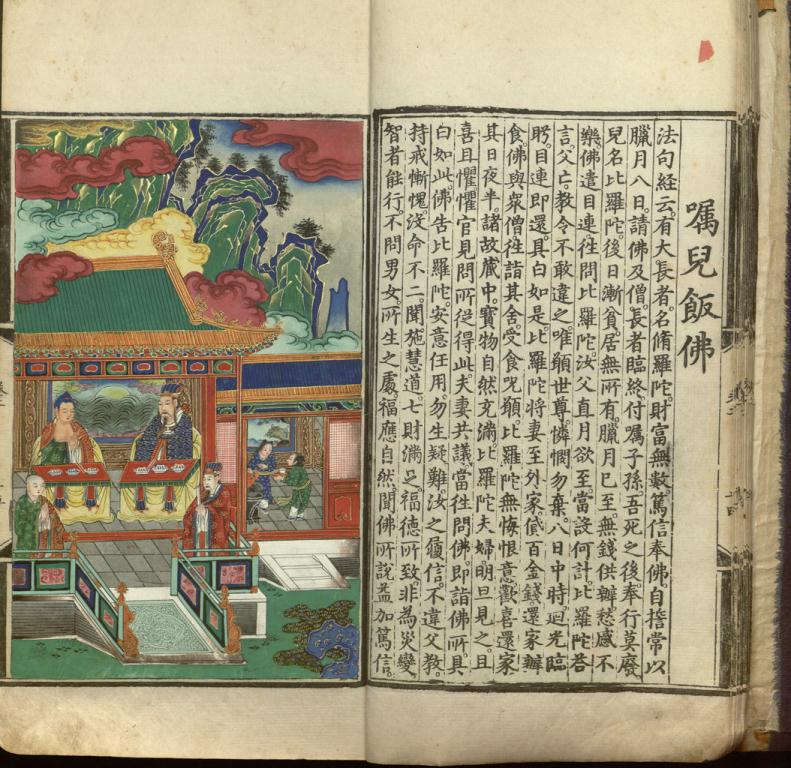 囑兒飯佛
法句經云。有大長者名脩羅陀。財富無數。篤信奉佛。自誓常以
臘月八日。請佛及僧。長者臨終。付囑子孫。吾死之後。奉行莫廢。
兒名比羅陀。後日漸貧。居無所有。臘月已至。無錢供辦。愁慼不
樂。佛遣目連往問比羅陀。汝父直月欲至。當設何計。比羅陀荅
言。父亡教令不敢違之。唯願世尊憐憫勿棄。八日中時。廻光臨
眄。目連即還。具白如是。比羅陀將妻至外家。貸百金錢還家辦
食。佛與衆僧往詣其舍。受食咒願。比羅陀無悔恨意。歡喜還家。
其日夜半。諸故藏中。寶物自然充滿。比羅陀夫婦。明旦見之。且
喜且懼。懼官見問。所從得此。夫妻共議。當往問佛。即詣佛所。具
白如此。佛告比羅陀。安意任用。勿生疑難。汝之履信。不違父教。
持戒慚愧。沒命不二。聞施慧道。七財滿足。福德所致。非為災變。
智者能行。不問男女。所生之處。福應自然。聞佛所說。益加篤信。